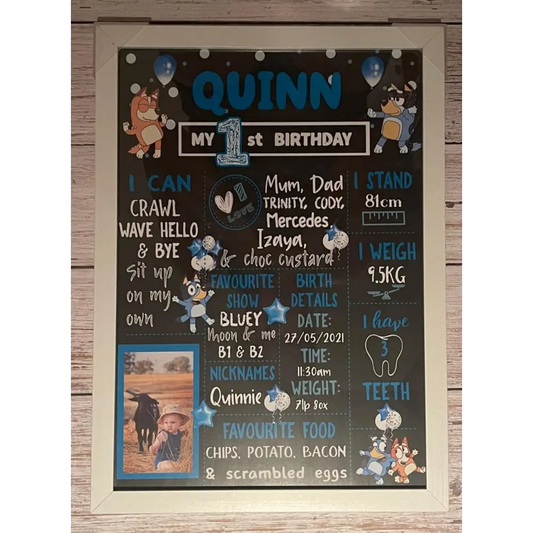 QUINN
MY 1st BIRTHDAY
I CAN
CRAWL
WAVE HELLO
& BYE
Sit up
on my
own
I
LOVE
Mum, Dad
TRINITY, CODY,
Mercedes
Izaya,
& choc custard
I STAND
81cm
I WEIGH
9.5KG
I have
3
TEETH
FAVOURITE
SHOW
BLUEY
Moon & me
B1 & B2
NICKNAMES
Quinnie
BIRTH
DETAILS
DATE:
27/05/2021
TIME:
11:30am
WEIGHT:
7lb 8ox
FAVOURITE FOOD
CHIPS, POTATO, BACON
& scrambled eggs